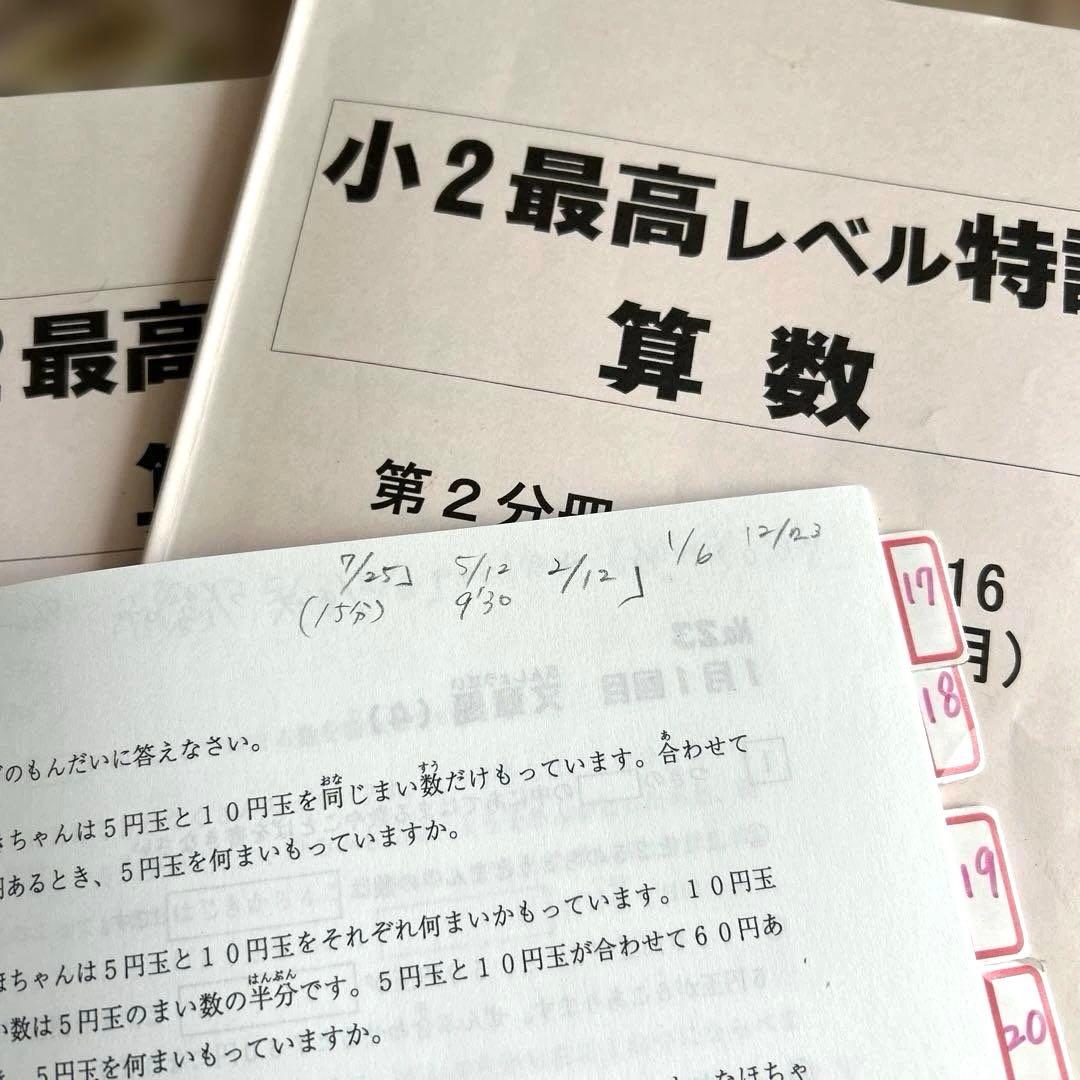 小2最高レベル特訓
算数
第2分冊
2最高
算
16
月)
7/25 5/12 2/12 1/6 12/23
(15分) 9'30
17
18
19
20
No.23
1月1回目 文章題(4)
のもんだいに答えなさい。
きちゃんは5円玉と10円玉を同じまい数だけもっています。合わせて
円あるとき、5円玉を何まいもっていますか。
ほちゃんは5円玉と10円玉をそれぞれ何まいかもっています。10円玉
い数は5円玉のまい数の半分です。5円玉と10円玉が合わせて60円あ
き、5円玉を何まいもっていますか。
なほちゃ